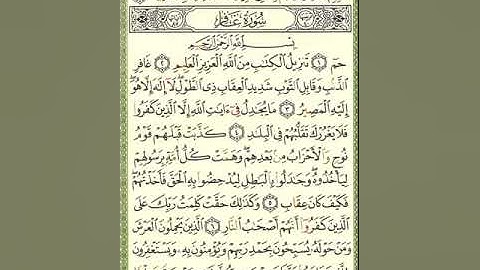 سُورَةُ غَافِرٍ
بِسْمِ اللَّهِ الرَّحْمَٰنِ الرَّحِيمِ
حمٓ ١ تَنزِيلُ الْكِتَٰبِ مِنَ اللَّهِ الْعَزِيزِ الْعَلِيمِ ٢ غَافِرِ
الذَّنۢبِ وَقَابِلِ التَّوْبِ شَدِيدِ الْعِقَابِ ذِى الطَّوْلِ لَآ إِلَٰهَ إِلَّا هُوَ
إِلَيْهِ الْمَصِيرُ ٣ مَا يُجَٰدِلُ فِىٓ ءَايَٰتِ اللَّهِ إِلَّا الَّذِينَ كَفَرُوا
فَلَا يَغْرُرْكَ تَقَلُّبُهُمْ فِى الْبِلَٰدِ ٤ كَذَّبَتْ قَبْلَهُمْ قَوْمُ
نُوحٍ وَالْأَحْزَابُ مِنۢ بَعْدِهِمْ وَهَمَّتْ كُلُّ أُمَّةٍۭ بِرَسُولِهِمْ
لِيَأْخُذُوهُ وَجَٰدَلُوا بِالْبَٰطِلِ لِيُدْحِضُوا بِهِ الْحَقَّ فَأَخَذْتُهُمْ
فَكَيْفَ كَانَ عِقَابِ ٥ وَكَذَٰلِكَ حَقَّتْ كَلِمَتُ رَبِّكَ عَلَى
الَّذِينَ كَفَرُوٓا أَنَّهُمْ أَصْحَٰبُ النَّارِ ٦ الَّذِينَ يَحْمِلُونَ الْعَرْشَ
وَمَنْ حَوْلَهُ يُسَبِّحُونَ بِحَمْدِ رَبِّهِمْ وَيُؤْمِنُونَ بِهِ وَيَسْتَغْفِرُونَ